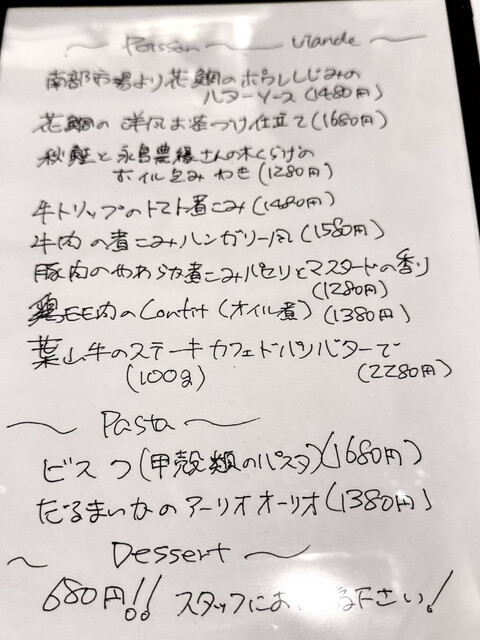 Poisson Viande
南部市場より花鯛のポワレしじみの
バターソース(1480円)
花鯛の洋風お茶づけ仕立て(1680円)
秋鮭と永島農縁さんの木くらげの
ホイル包みやき(1280円)
牛トリップのトマト煮こみ(1480円)
牛肉の煮こみハンガリー風(1580円)
豚肉のやわらか煮こみパセリとマスタードの香り
(1280円)
鶏モモ肉のConfit(オイル煮)(1380円)
葉山牛のステーキカフェドパリバターで
(100g) (2280円)
Pasta
ビスク(甲殻類のパスタ)(1680円)
だるまいかのアーリオオーリオ(1380円)
Dessert
680円!! スタッフにお 下さい!